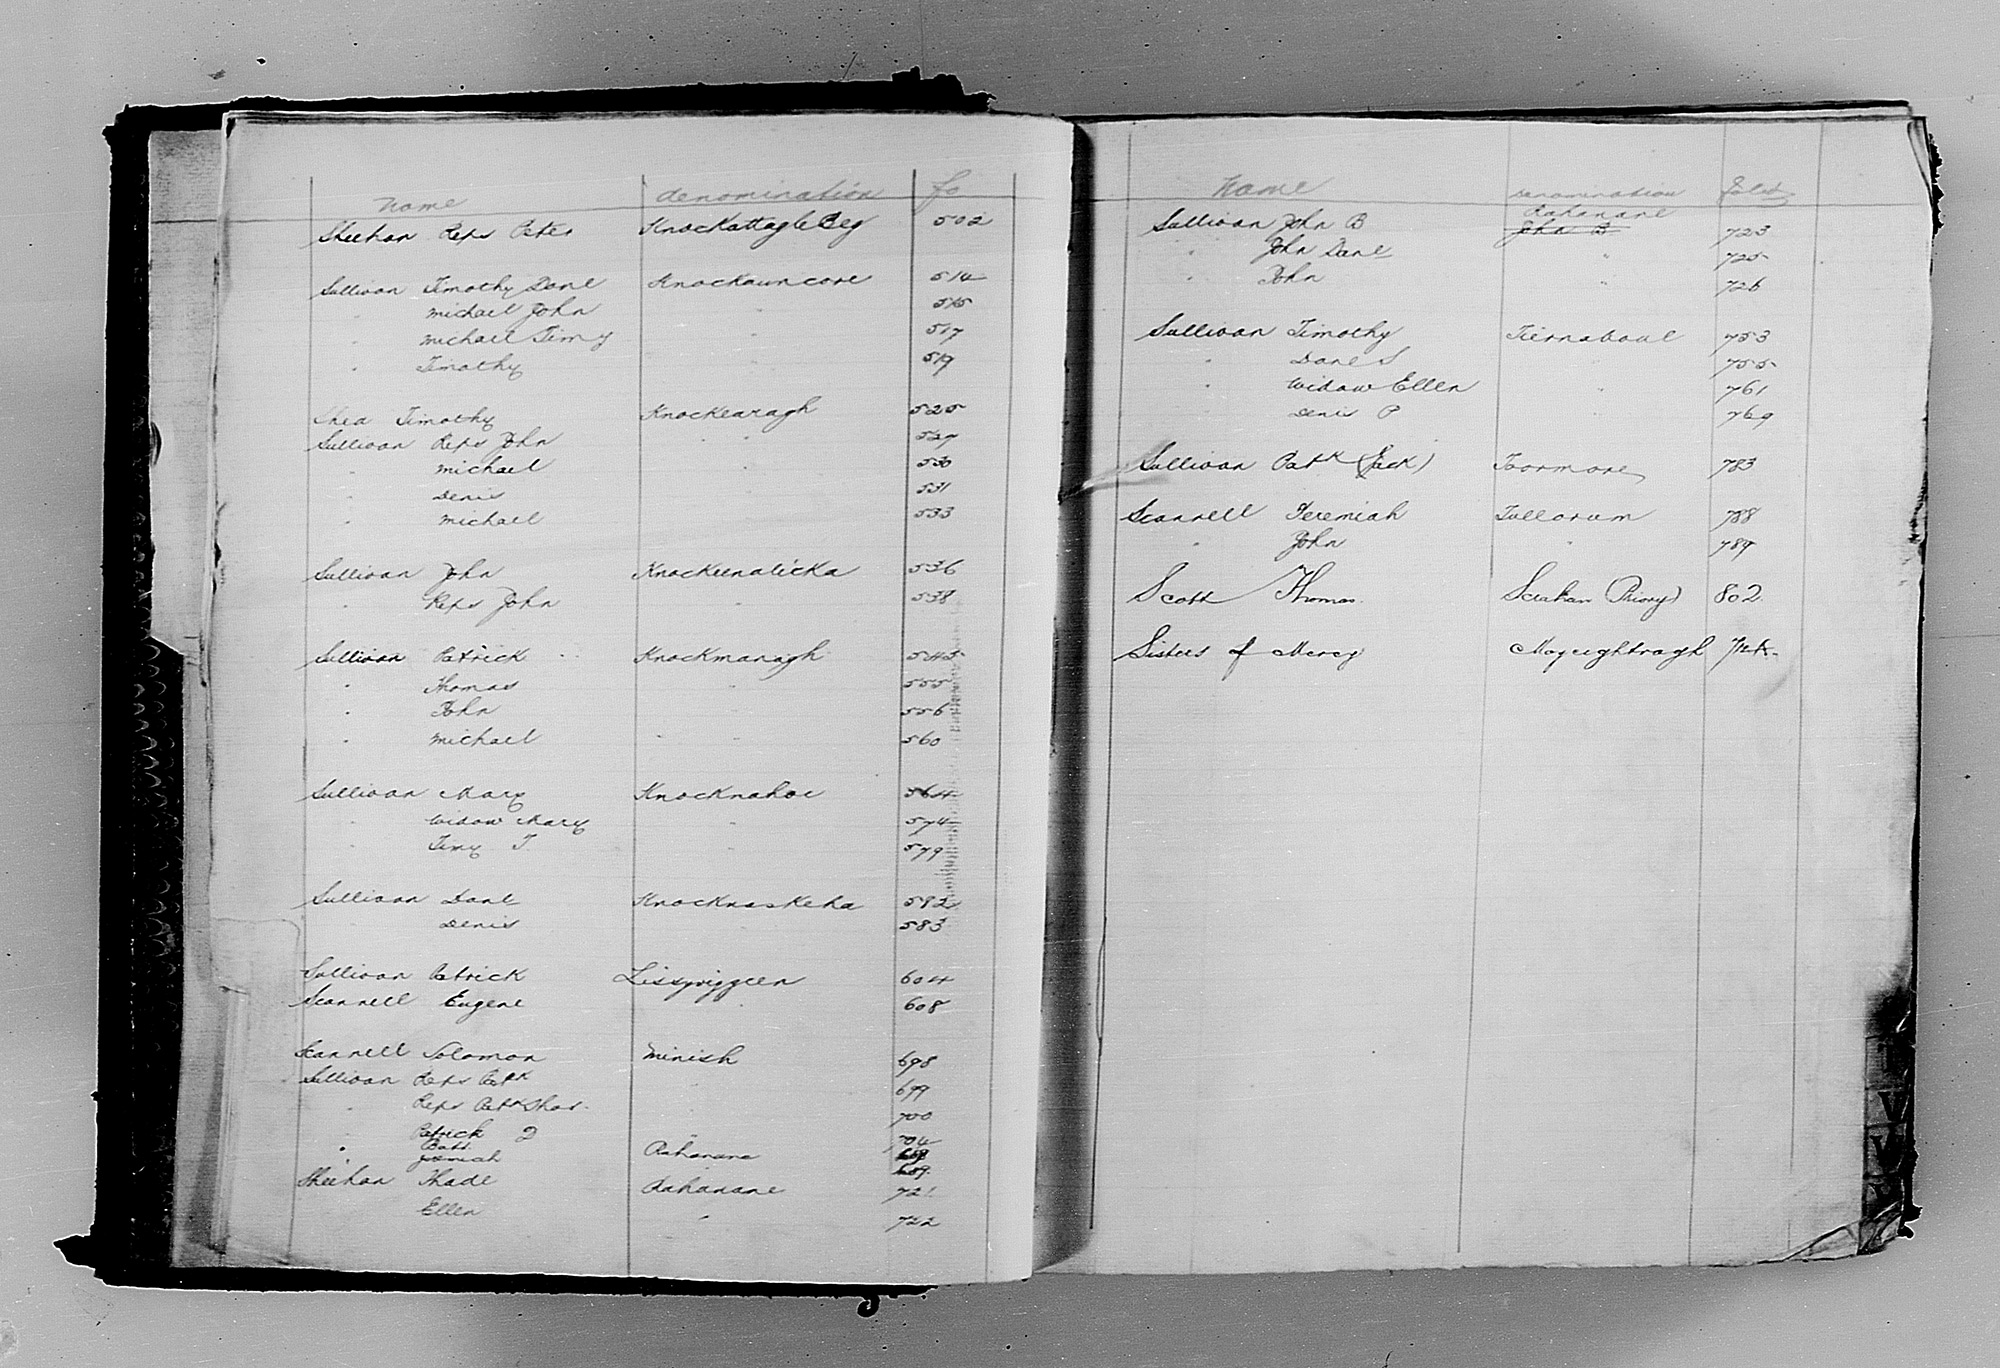 Name denomination fo
Sheehan Reps Peter KnockattagleBeg 502
Sullivan Timothy Danl Knockauncore 514
" Michael John " 515
" Michael Timy " 517
" Timothy " 519
Shea Timothy Knockearagh 525
Sullivan Reps John " 529
" Michael 530
" Denis 531
" Michael 533
Sullivan John Knockeenalicka 536
" Reps John " 538
Sullivan Patrick Knockmanagh 545
" Thomas " 555
" John 556
" Michael " 560
Sullivan Mary Knocknahoe 564
" Widow Mary " 574
" Timy T. " 579
Sullivan Danl Knocknaskeha 582
" Denis 583
Sullivan Patrick Lissyviggeen 604
Scannell Eugene " 608
Scannell Solomon Minish 698
Sullivan Reps Patk " 699
" Reps Patk Thos. " 700
" Patrick D " 704
" Batt
" Jeremiah Rahanane 689
Sheehan Thade Rahanane 721
Ellen " 722
Name Denomination Folio
Rahanane
Sullivan John B John B 723
" John Danl " 725
" John " 726
Sullivan Timothy Tiernaboul 753
" Danl S " 755
" Widow Ellen " 761
" Denis P " 769
Sullivan Patk (Jack) Toormore 783
Scannell Jeremiah Tullorum 788
" John " 789
Scott Thomas Scrahan (Priory) 802
Sisters of Mercy Moyeightragh